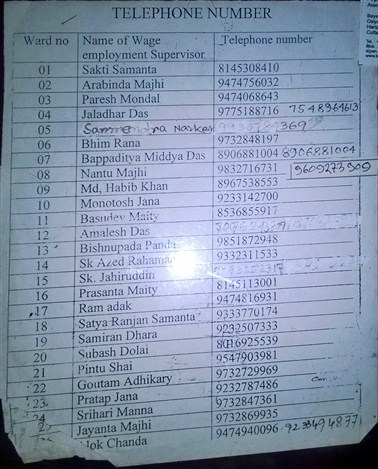 TELEPHONE NUMBER
Ward no Name of Wage employment Supervisor Telephone number
01 Sakti Samanta 8145308410
02 Arabinda Majhi 9474756032
03 Paresh Mondal 9474068643
04 Jaladhar Das 9775188716 7548964613
05 Naskar
06 Bhim Rana 9732848197
07 Bappaditya Middya Das 8906881004 8906881004
08 Nantu Majhi 9832716731 9609273909
09 Md, Habib Khan 8967538553
10 Monotosh Jana 9233142700
11 Basudev Maity 8536855917
12 Amalesh Das
13 Bishnupada Panda 9851872948
14 Sk Azed Rahaman 9332311533
15 Sk. Jahiruddin
16 Prasanta Maity 8145113001
17 Ram adak 9474816931
18 Satya Ranjan Samanta 9333770174
19 Samiran Dhara 9232507333
20 Subash Dolai 8016925539
21 Pintu Shai 9547903981
22 Goutam Adhikary 9732729969
23 Pratap Jana 9232787486
24 Srihari Manna 9732847361
Jayanta Majhi 9732869935
lok Chanda 9474940096